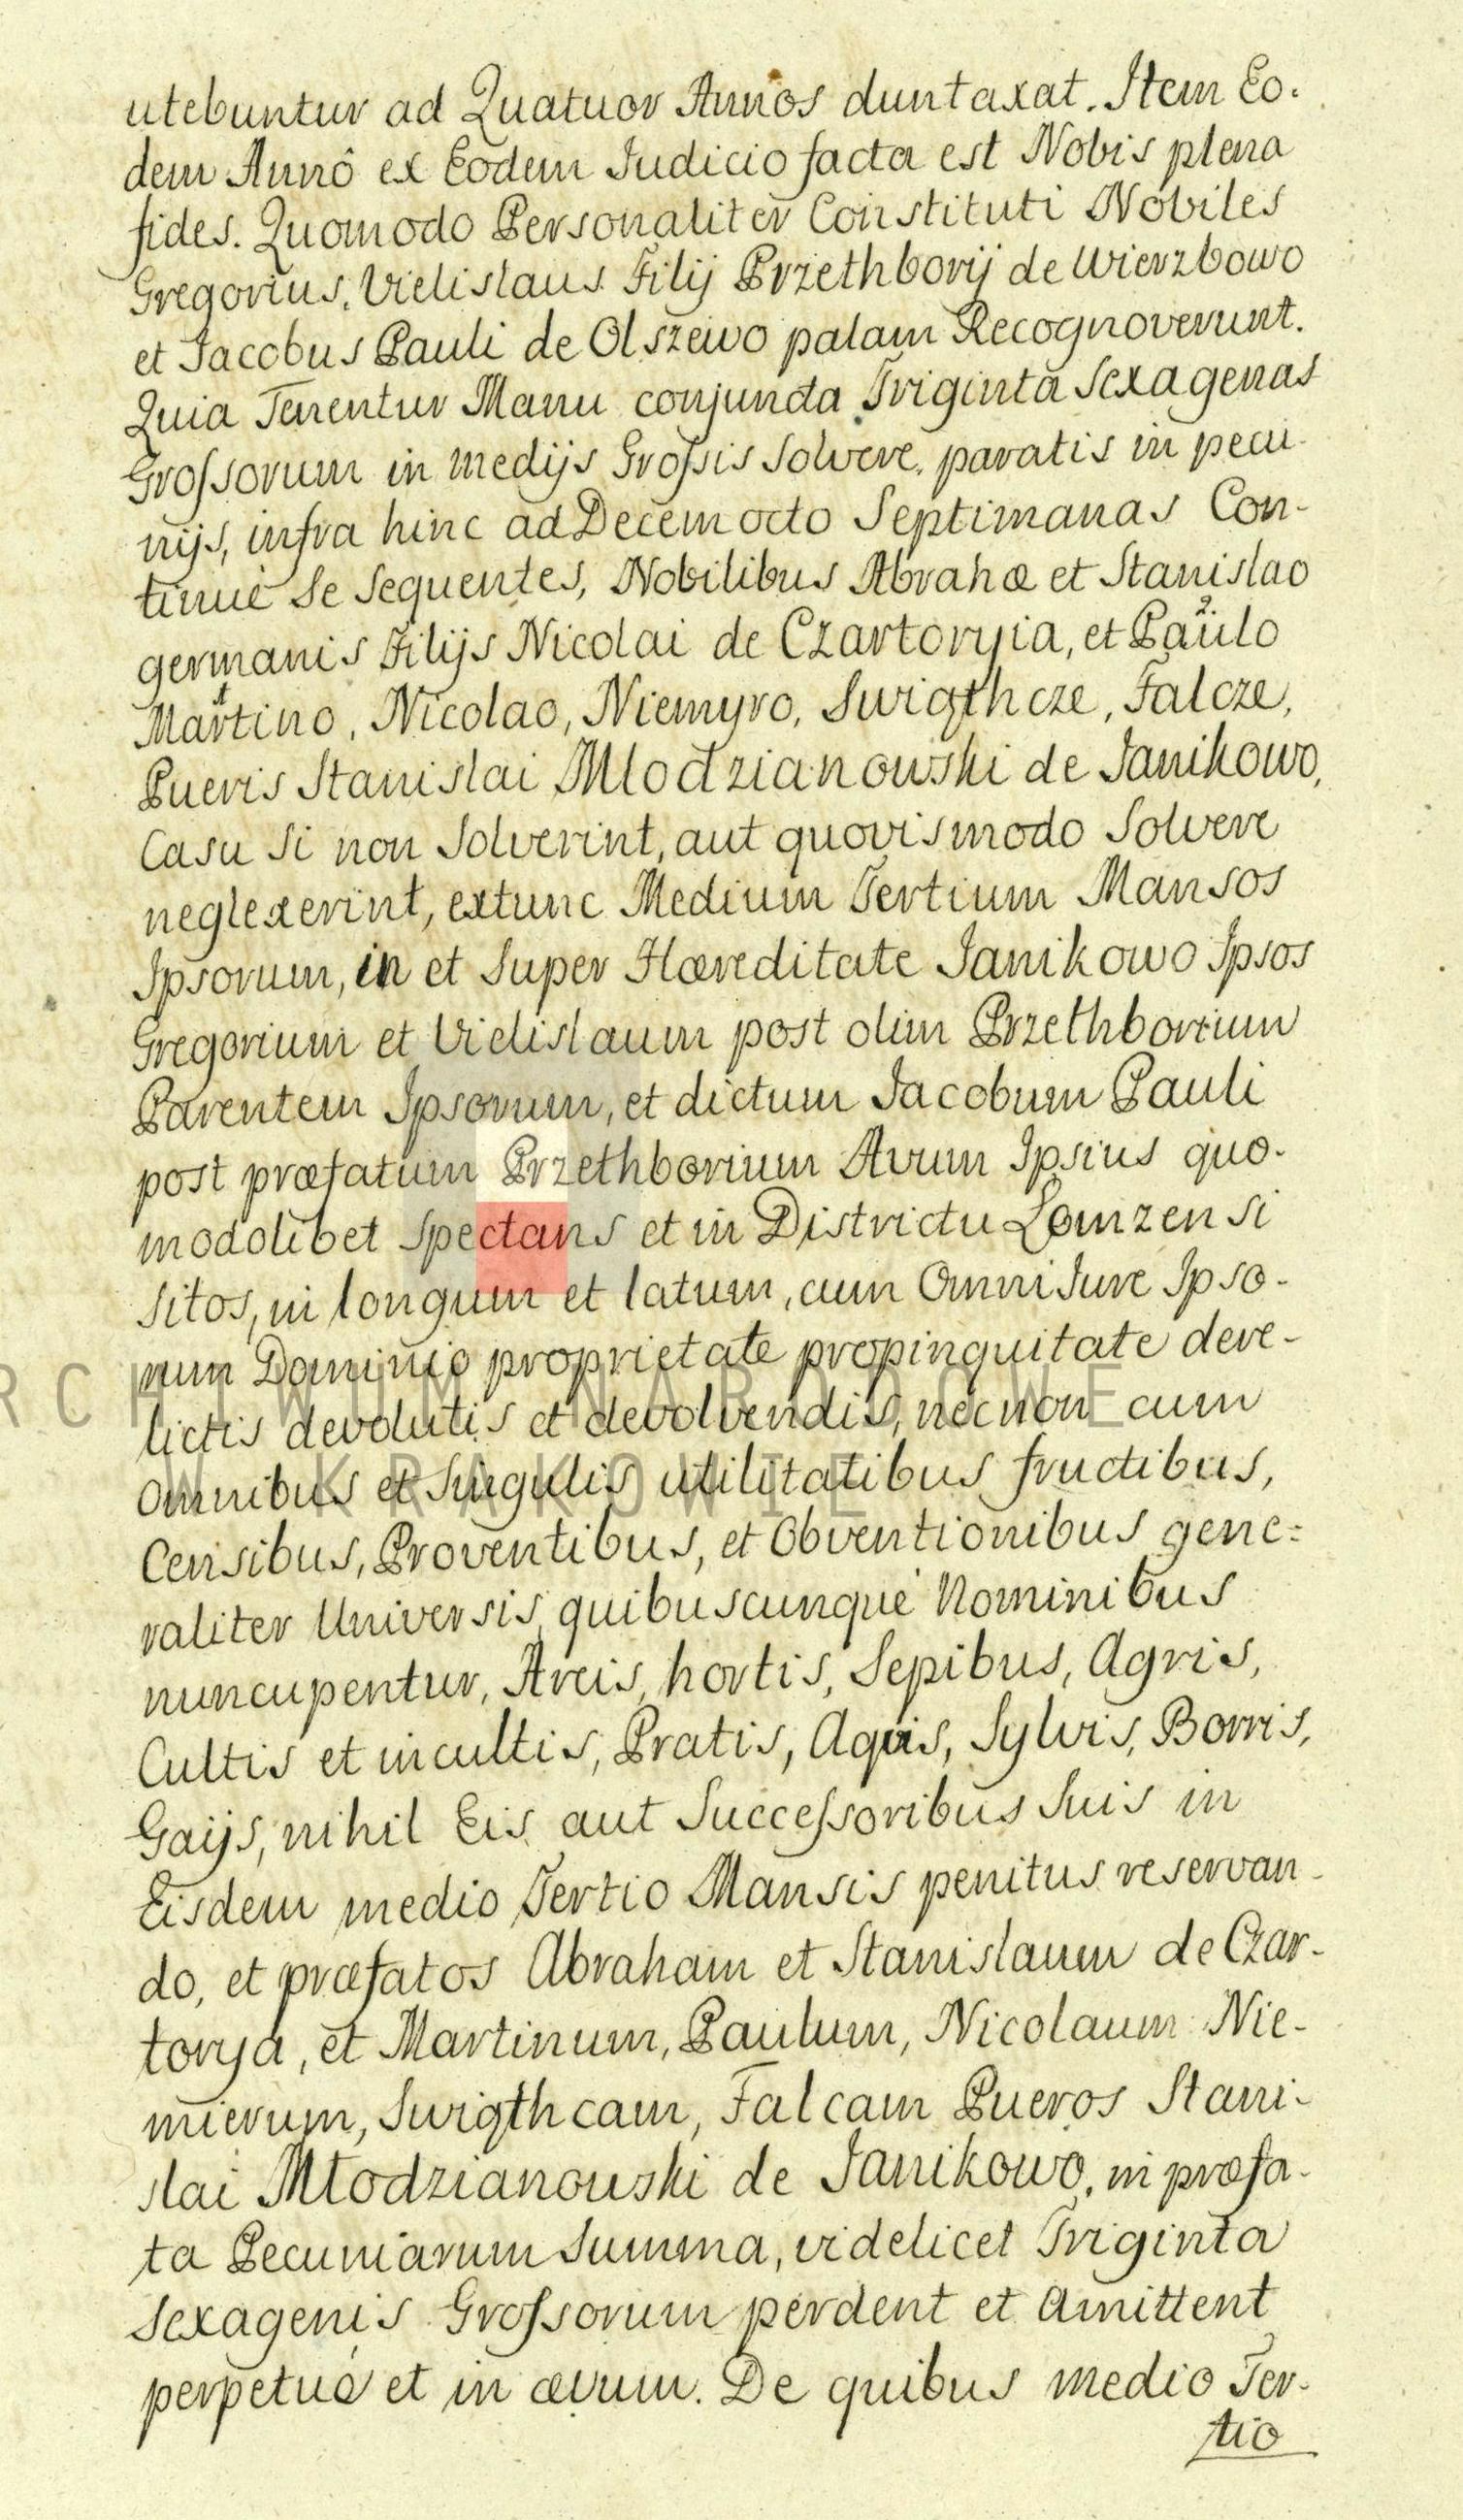 utebuntur ad Quatuor Annos duntaxat. Item Eo.
dem Annô ex Eodem Iudicio facta est Nobis plena
fides. Quomodo Personaliter Constituti Nobiles
Gregorius, Vielislaus Filij Przethborij de Wierzbowo
et Jacobus Pauli de Olszewo palam Recognoverunt.
Quia Tenentur Manu conjuncta Triginta Sexagenas
Grossorum in medijs Grossis Solvere, paratis in pecu-
nijs, infra hinc ad Decem octo Septimanas Con-
tinuè Se Sequentes, Nobilibus Abrahæ et Stanislao
germanis Filijs Nicolai de Czartoryia, et Paulo 2.
Martino 1, Nicolao, Niemyro, Swigthcze, Falcze,
Pueris Stanislai Mlodzianowski de Janikowo,
Casu Si non Solverint, aut quovismodo Solvere
neglexerint, extunc Medium Tertium Mansos
Ipsorum, in et Super Hæreditate Janikowo Ipsos
Gregorium et Vielislaum post olim Przethborium
Parentem Ipsorum, et dictum Jacobum Pauli
post præfatum Przethborium Avum Ipsius quo-
modolibet Spectans et in Districtu Lomzensi
Sitos, in longum et latum, cum Omni Iure Ipso-
rum Dominio proprietate propinquitate dere-
lictis devolutis et devolvendis, necnon cum
Omnibus et Singulis utilitatibus fructibus,
Censibus, Proventibus, et Obventionibus gene=
raliter Universis, quibuscunque Nominibus
nuncupentur, Areis, hortis, Sepibus, Agris,
Cultis et incultis, Pratis, Aquis, Sylvis, Borris,
Gaijs, nihil Eis aut Successoribus Suis in
Eisdem medio Tertio Mansis penitus reservan-
do, et præfatos Abraham et Stanislaum de Czar-
torya, et Martinum, Paulum, Nicolaum Nie-
mierum, Swigthcam, Falcam Pueros Stani-
slai Mlodzianowski de Janikowo, in præfa-
ta Pecuniarum Summa, videlicet Triginta
Sexagenis Grossorum perdent et Amittent
perpetuò et in ævum. De quibus medio Ter-
tio
RCHIWUM NARODOWE
W KRAKOWIE